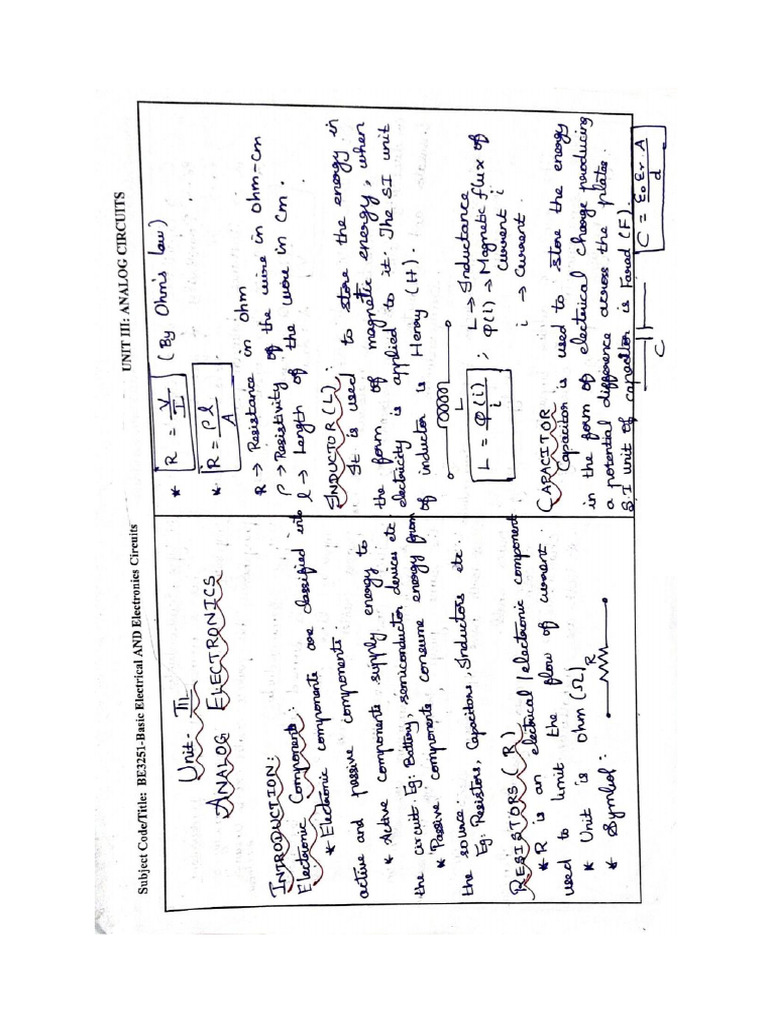 Subject Code/Title: BE3251-Basic Electrical AND Electronics Circuits
UNIT III: ANALOG CIRCUITS
Unit - III
ANALOG ELECTRONICS
INTRODUCTION:
Electronic Components:
* Electronic components are classified into
active and passive components.
* Active components supply energy to
the circuit. Eg: Battery, semiconductor devices etc.
* Passive components consume energy from
the source.
Eg: Resistors, Capacitors, Inductors etc.
RESISTORS (R)
* R is an electrical/electronic component
used to limit the flow of current.
* Unit is ohm (Ω)
* Symbol: R
* R = V/I (By Ohm's law)
* R = ρl/A
R → Resistance in ohm
ρ → Resistivity of the wire in ohm-cm
l → Length of the wire in cm.
INDUCTOR (L):
It is used to store the energy in
the form of magnetic energy, when
electricity is applied to it. The SI unit
of inductor is Henry (H).
L
L = φ(i)/i ; L → Inductance
φ(i) → Magnetic flux of
current i
i → Current.
CAPACITOR
Capacitor is used to store the energy
in the form of electrical charge producing
a potential difference across the plates.
S.I unit of capacitor is Farad (F).
C
C = ε0 εr. A/d